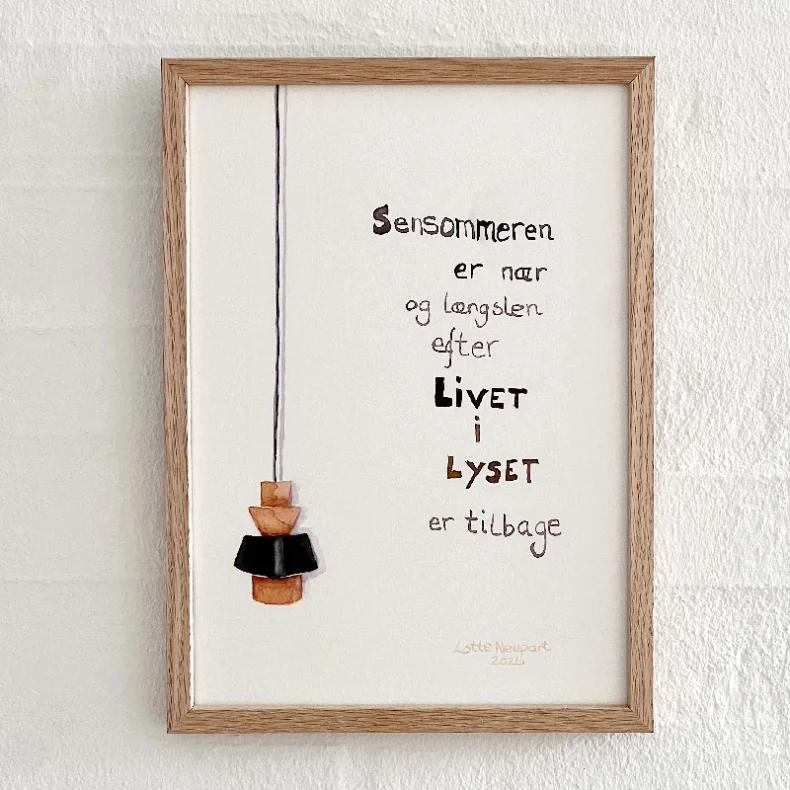 Sensommeren
er nær
og længslen
efter
LiVET
i
LYSET
er tilbage
Lotte Neupart